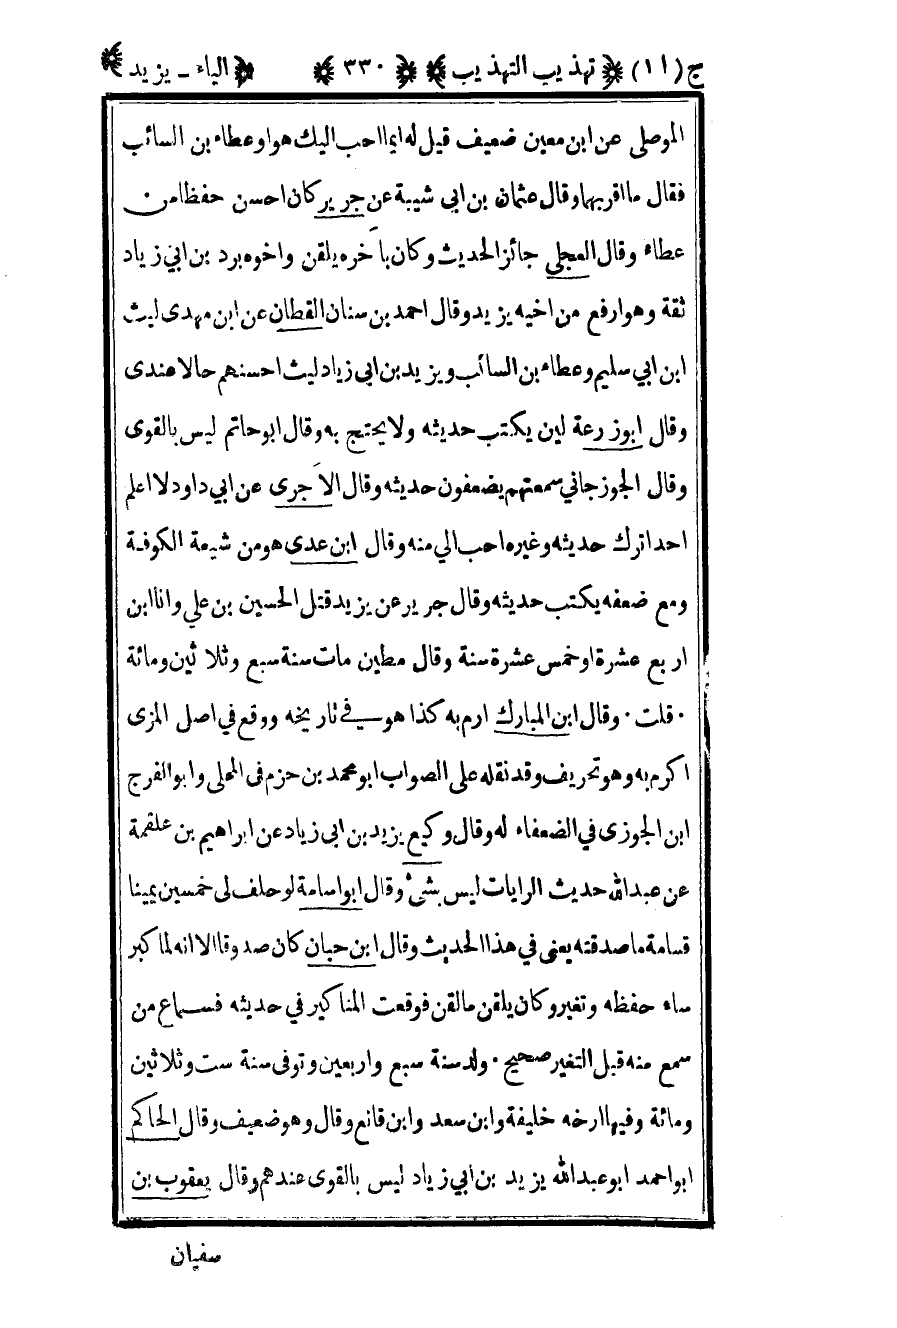 ج (١١) تهذيب التهذيب ٣٣٠ الياء - يزيد
الموصلى عن ابن معين ضعيف قيل له ايما احب اليك هو او عطاء بن السائب
فقال ما اقربهما وقال عثمان بن ابى شيبة عن جرير كان احسن حفظا من
عطاء وقال العجلى جائز الحديث وكان بآخره يلقن واخوه برد بن ابي زياد
ثقة وهو ارفع من اخيه يزيد وقال احمد بن سنان القطان عن ابن مهدى ليث
ابن ابي سليم وعطاء بن السائب ويزيد بن ابى زياد ليث احسنهم حالا عندى
وقال ابوزرعة لين يكتب حديثه ولا يحتج به وقال ابو حاتم ليس بالقوى
وقال الجوزجاني سمعتهم يضعفون حديثه وقال الآجرى عن ابي داود لا اعلم
احدا ترك حديثه وغيره احب الي منه وقال ابن عدى هو من شيعة الكوفة
ومع ضعفه يكتب حديثه وقال جرير عن يزيد قتل الحسين بن علي وانا ابن
اربع عشرة او خمس عشرة سنة وقال مطين مات سنة سبع وثلاثين ومائة
٠ قلت ٠ وقال ابن المبارك ارم به كذا هو في تاريخه ووقع في اصل المزى
اكرم به وهو تحريف وقد نقله على الصواب ابو محمد بن حزم فى المحلى وابو الفرج
ابن الجوزى في الضعفاء له وقال وكيع يزيد بن ابى زياد عن ابراهيم بن علقمة
عن عبد الله حديث الرايات ليس بشئ وقال ابو اسامة لو حلف لى خمسين يمينا
قسامة ما صدقته يعنى في هذا الحديث وقال ابن حبان كان صدوقا الا انه لما كبر
ساء حفظه وتغير وكان يلقن ما لقن فوقعت المناكير في حديثه فسماع من
سمع منه قبل التغير صحيح ٠ ولد سنة سبع واربعين وتوفى سنة ست وثلاثين
ومائة وفيها ارخه خليفة وابن سعد وابن قانع وقال وهو ضعيف وقال الحاكم
ابو احمد ابو عبد الله يزيد بن ابي زياد ليس بالقوى عندهم وقال يعقوب بن
سفيان